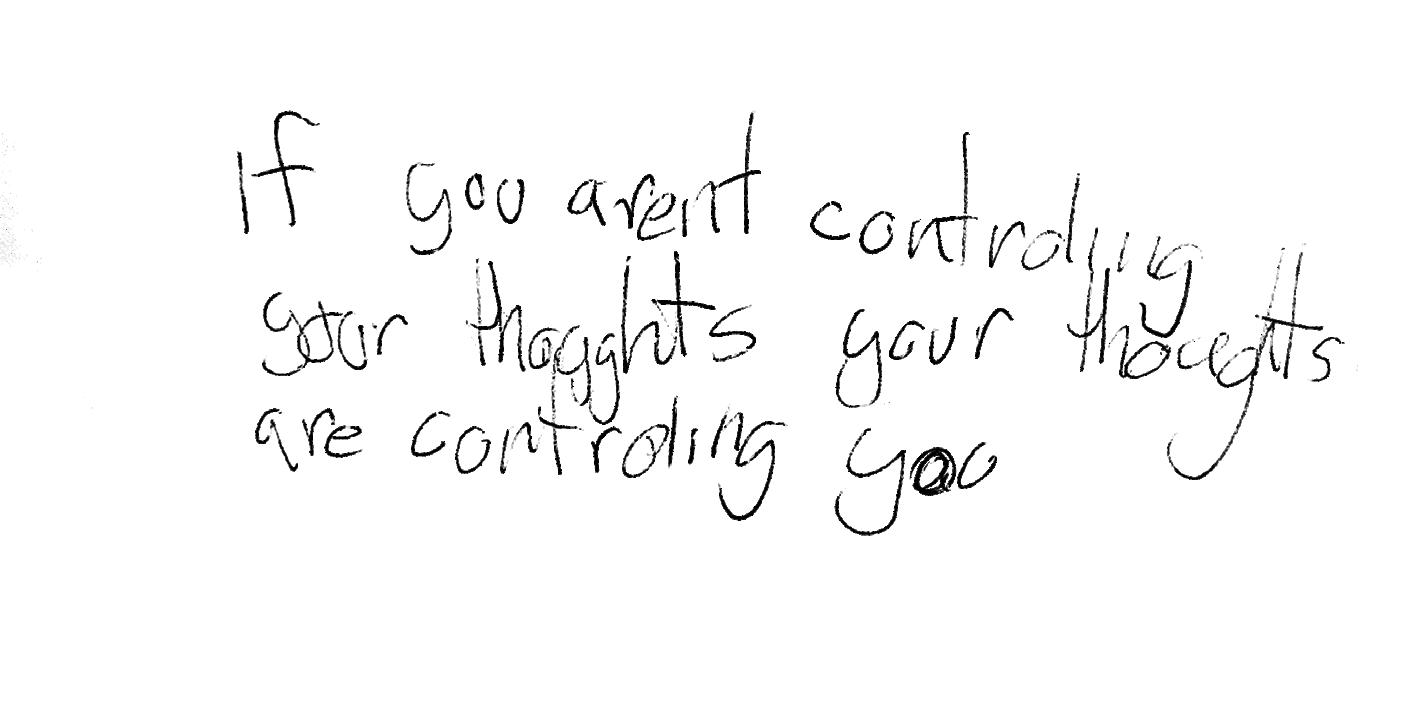 If you arent controling
your thogghts your thoughts
are controling you